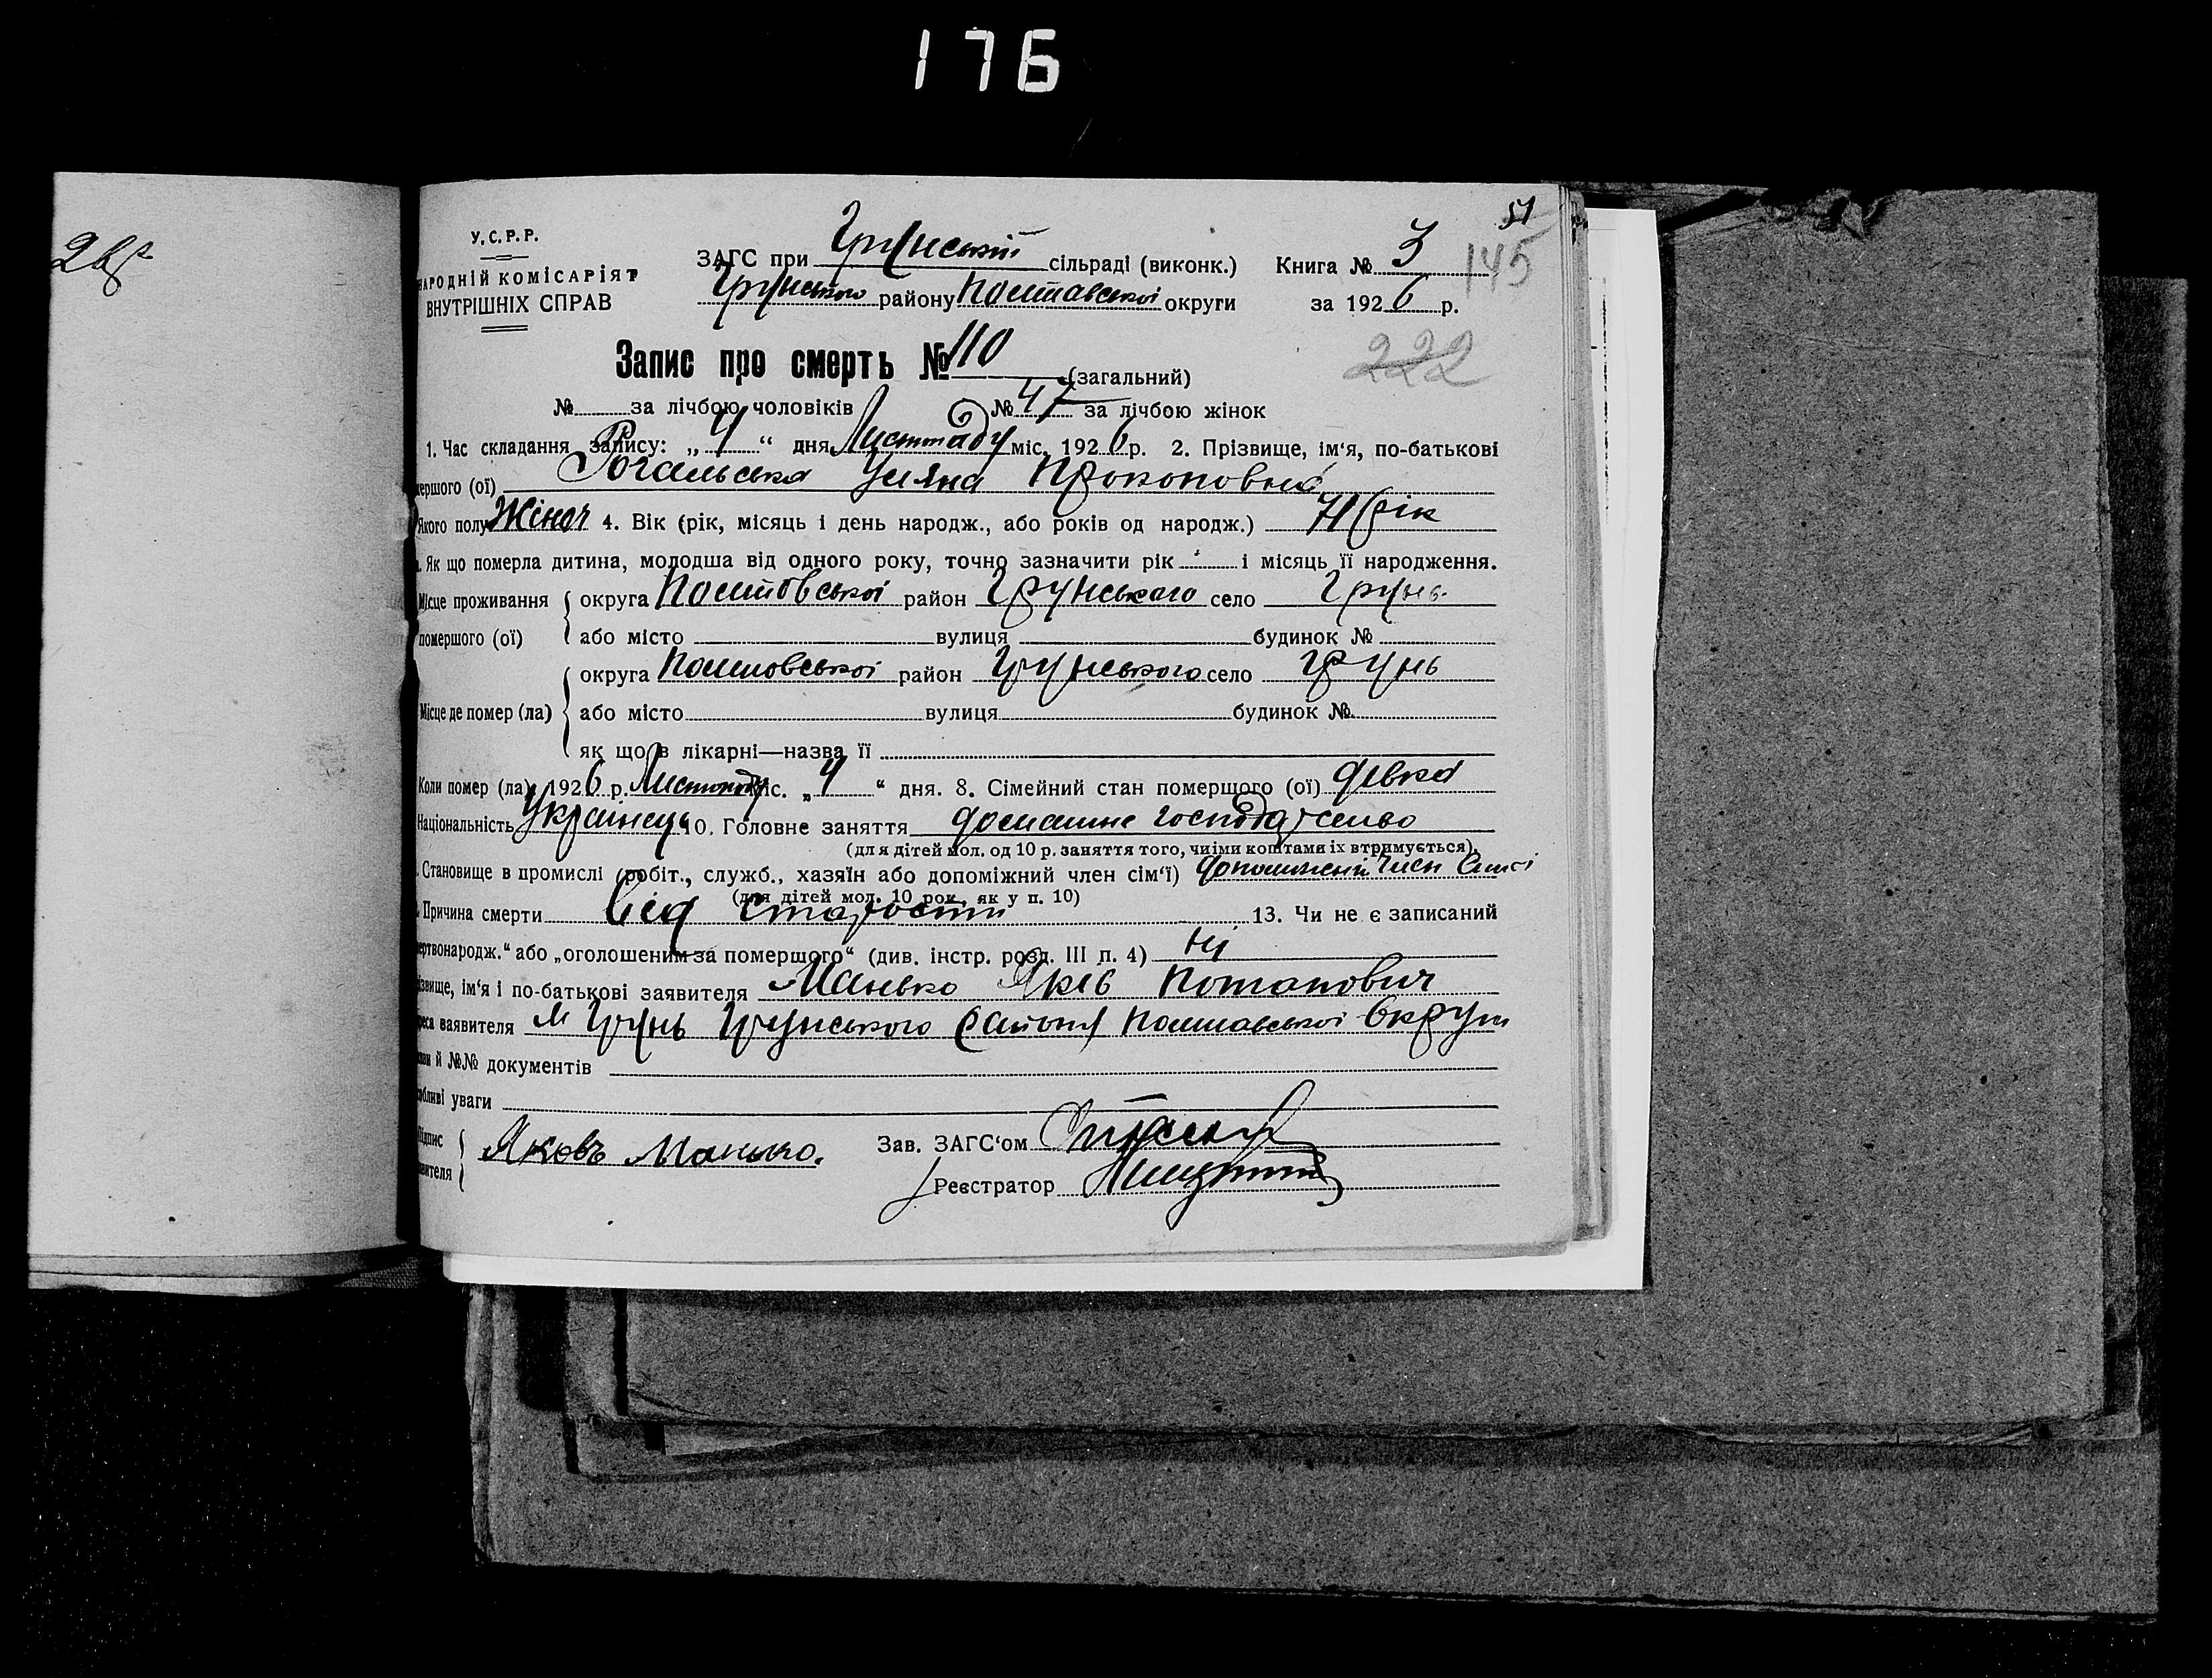 176
51
У.С.Р.Р.
НАРОДНІЙ КОМІСАРІЯТ
ВНУТРІШНІХ СПРАВ
ЗАГС при Грунській сільраді (виконк.) Книга № 3 145
Грунського району Полтавської округи за 1926 р.
Запис про смерть № 110 (загальний)
222
№ за лічбою чоловіків № 47 за лічбою жінок
1. Час складання запису: „4“ дня Листопаду міс. 1926 р. 2. Прізвище, ім‘я, по-батькові
мершого (ої) Рогальська Уляна Прокоповна
Якого полу Жіноч 4. Вік (рік, місяць і день народж., або років од народж.) 71 рік
Як що померла дитина, молодша від одного року, точно зазначити рік і місяць її народження.
Місце проживання округа Полтовської район Грунського село Грунь
помершого (ої) або місто вулиця будинок №
округа Полтовської район Грунського село Грунь
Місце де помер (ла) або місто вулиця будинок №
як що в лікарні—назва її
Коли помер (ла) 1926 р. Листопаду міс. „4“ дня. 8. Сімейний стан помершого (ої) девка
Національність Українець 10. Головне заняття домашнє господарсьво
(для дітей мол. од 10 р. заняття того, чиїми коштами їх втримується).
Становище в промислі (робіт., служб., хазяїн або допоміжний член сім‘ї) допоміжний член сімї
(для дітей мол. 10 рок., як у п. 10)
Причина смерти Від старости 13. Чи не є записаний
ертвонародж.“ або „оголошеним за помершого“ (див. інстр. розд. III п. 4) Ні
ізвище, ім‘я і по-батькові заявителя Манько Яків Потапович
реса заявителя м Грунь Грунського району Полтавської округи
й №№ документів
собливі уваги
Підпис Яковъ Манько. Зав. ЗАГС‘ом
явителя Реєстратор